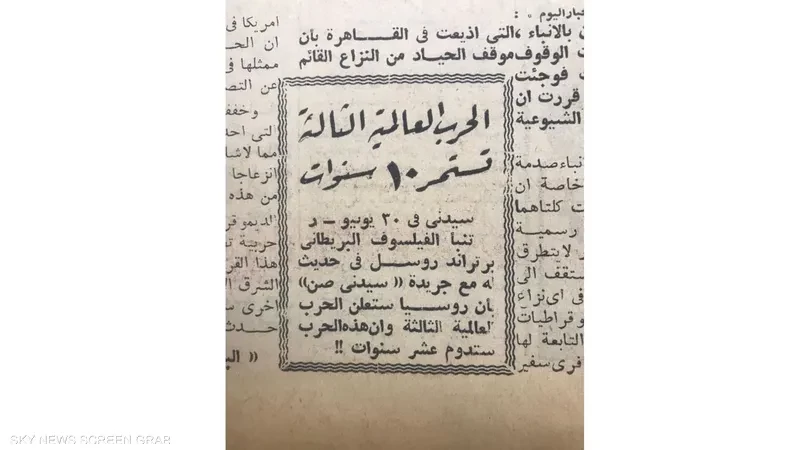 خبار اليوم :
ن بالانباء ، التى اذيعت فى القــاهرة بأن
ت الوقوف موقف الحياد من النزاع القائم
ف فوجئت
قررت ان
الشيوعية
نباء صدمة
خاصة ان
ت كلتاهما
رسمية
ر لا يتطرق
ستقف الى
فى اى نزاع
وقراطيات
التابعة لها
فرى سفير
الحرب العالمية الثالثة
تستمر ١٠ سنوات
سيدنى فى ٣٠ يونيو ــ ر
تنبأ الفيلسوف البريطانى
برتراند روسـل فى حديث
له مع جريدة «سيدنى صن»
بان روسـيا ستعلن الحرب
العالمية الثالثة وان هذه الحرب
ستدوم عشر سنوات !!
امريكا فى
ان الحـ
ممثلها فى
عن التصـ
وخفف
التى احد
مما لاشـ
انزعاجا
من هذه
الديمو قر
حربية تـ
هذا القر
الشرق ال
اخرى سـ
حدث
« البـ
SKY NEWS SCREEN GRAB